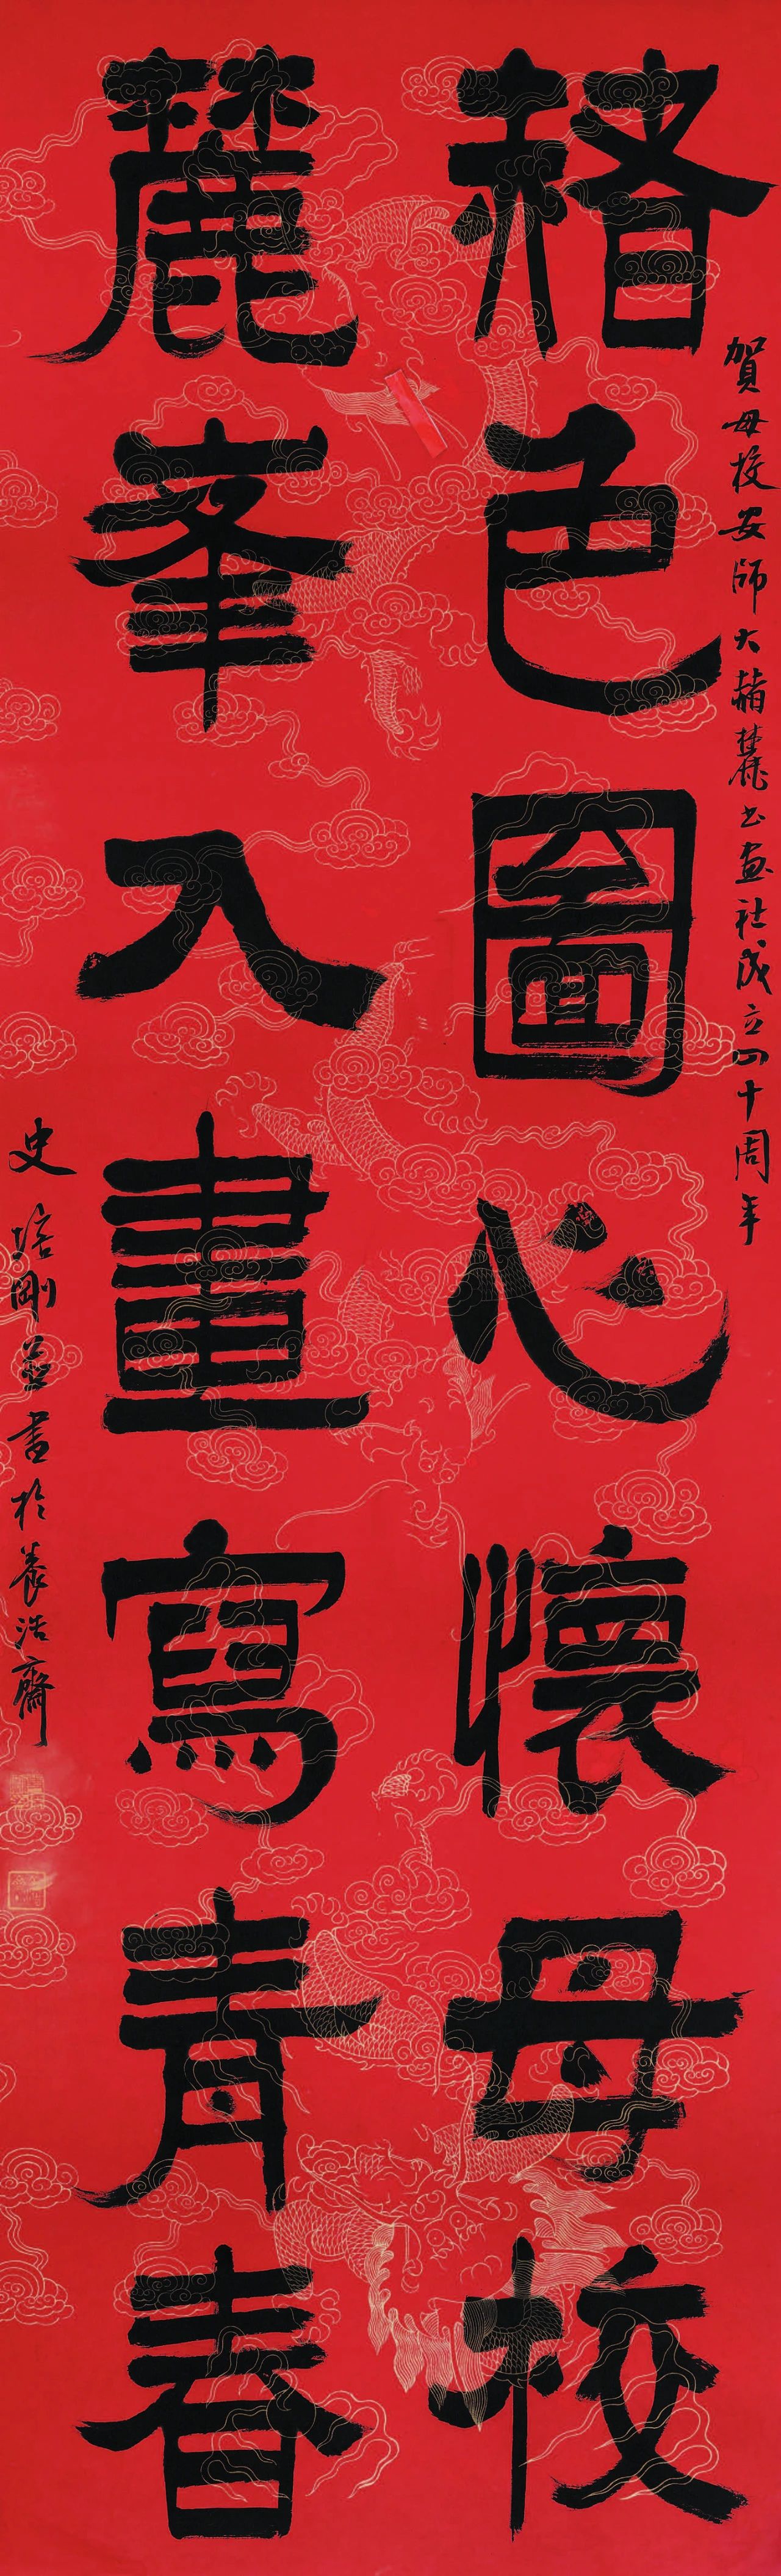 賀母校安師大赭麓书画社成立四十周年
赭色圖心懷母校
麓峯入畫寫青春
史培剛並書於養浩齋